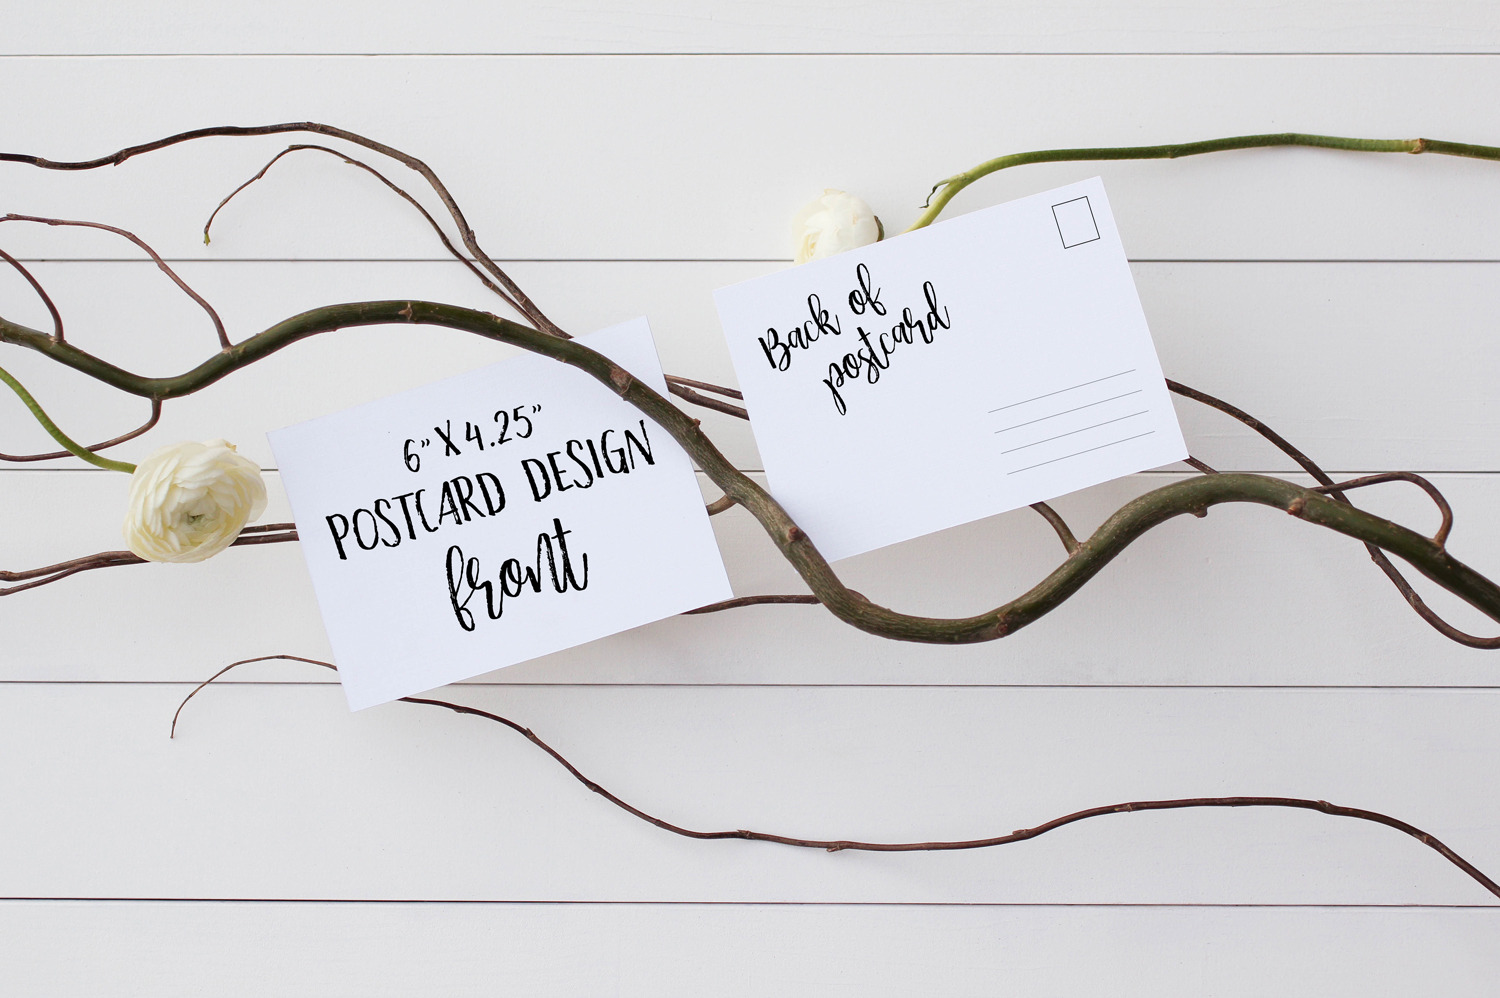 6” X 4.25”
POSTCARD DESIGN
front
Back of
postcard